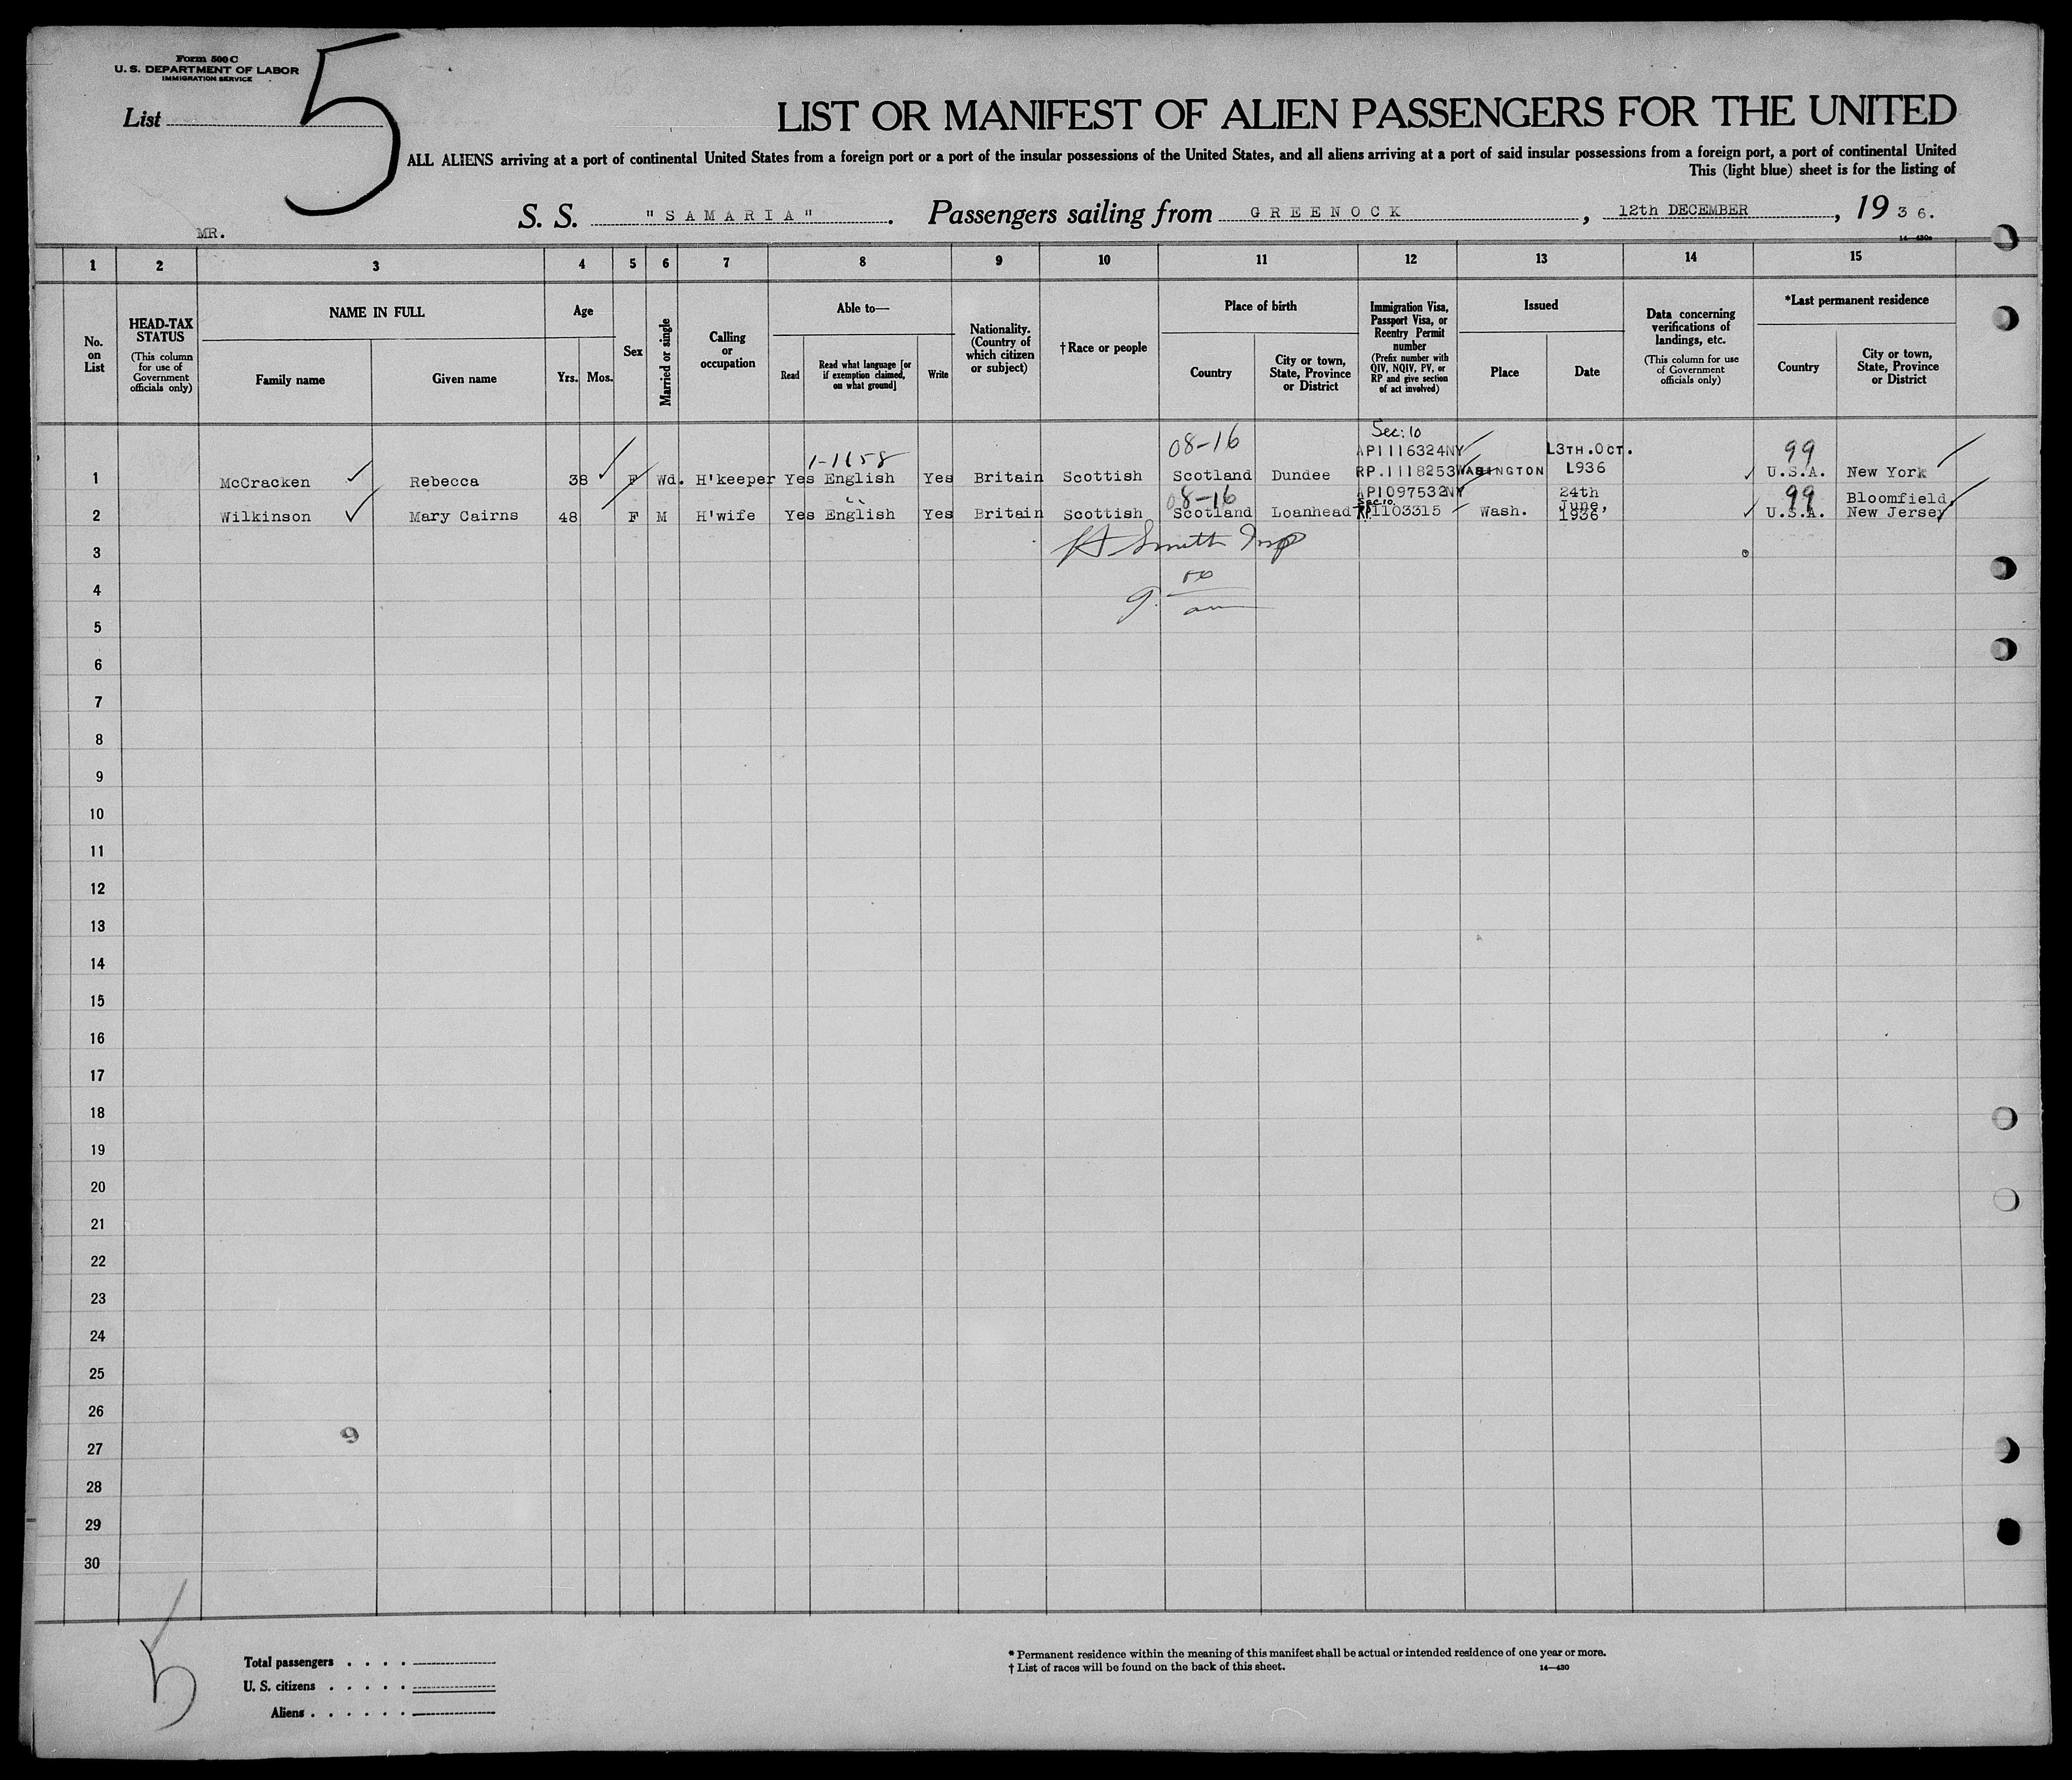 Form 500 C
U. S. DEPARTMENT OF LABOR
IMMIGRATION SERVICE
List 5
LIST OR MANIFEST OF ALIEN PASSENGERS FOR THE UNITED
ALL ALIENS arriving at a port of continental United States from a foreign port or a port of the insular possessions of the United States, and all aliens arriving at a port of said insular possessions from a foreign port, a port of continental United
This (light blue) sheet is for the listing of
S. S. "SAMARIA". Passengers sailing from GREENOCK, 12th DECEMBER, 1936.
MR.
14—430a
1 2 3 4 5 6 7 8 9 10 11 12 13 14 15
No. on List
HEAD-TAX STATUS
(This column for use of Government officials only)
NAME IN FULL
Family name
Given name
Age
Yrs. Mos.
Sex
Married or single
Calling or occupation
Able to—
Read
Read what language [or if exemption claimed, on what ground]
Write
Nationality. (Country of which citizen or subject)
†Race or people
Place of birth
Country
City or town, State, Province or District
Immigration Visa, Passport Visa, or Reentry Permit number
(Prefix number with QIV, NQIV, PV, or RP and give section of act involved)
Issued
Place
Date
Data concerning verifications of landings, etc.
(This column for use of Government officials only)
*Last permanent residence
Country
City or town, State, Province or District
Sec: 10
08-16 AP1116324NY L3TH.OCT. 99
1-1658
1 McCracken Rebecca 38 F Wd. H'keeper Yes English Yes Britain Scottish Scotland Dundee RP.1118253 WASHINGTON L936 U.S.A. New York
08-16 AP1097532NY 24th 99 Bloomfield,
Sec.10. June,
2 Wilkinson Mary Cairns 48 F M H'wife Yes English Yes Britain Scottish Scotland Loanhead RP.1103315 Wash. 1936 U.S.A. New Jersey
3
Smith Insp
4
9
5
6
7
8
9
10
11
12
13
14
15
16
17
18
19
20
21
22
23
24
25
26
9
27
28
29
30
5
Total passengers . . . .
U. S. citizens . . . . .
Aliens . . . . . .
* Permanent residence within the meaning of this manifest shall be actual or intended residence of one year or more.
† List of races will be found on the back of this sheet. 14—430